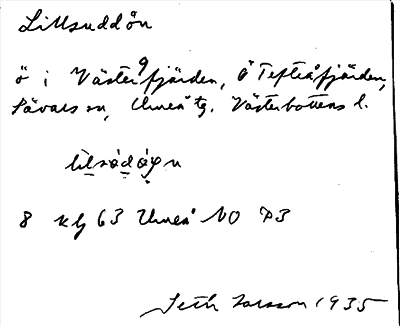 Lillsuddön
ö i Västerfjärden, ö Tefteåfjärden,
Sävars sn, Umeå tg. Västerbottens l.
8 Klf 63 Umeå NO
Seth Larsson 1935